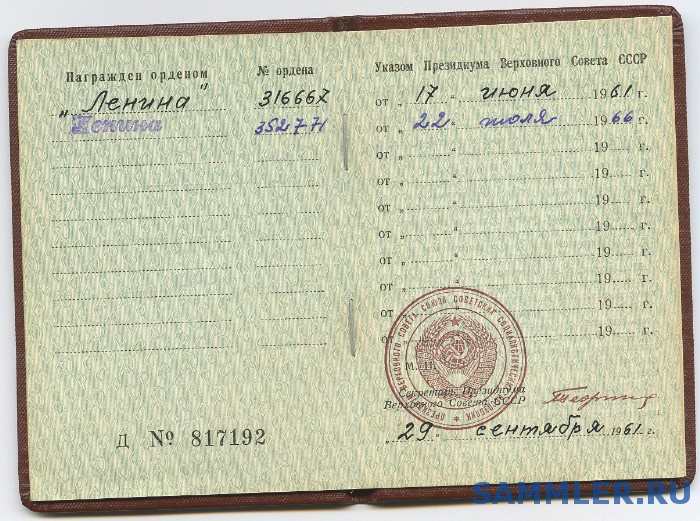 Награжден орденом
№ ордена
„Ленина"
316667
Ленина
352771
Указом Президиума Верховного Совета СССР
от „ 17 " июня 1961 г.
от „ 22 " июля 1966 г.
от „ " 19 г.
от „ " 19 г.
от „ " 19 г.
от „ " 19 г.
от „ " 19 г.
от „ " 19 г.
от „ " 19 г.
от 19 г.
от 19 г.
М. П.
ПРЕЗИДИУМ ВЕРХОВНОГО СОВЕТА СОЮЗА СОВЕТСКИХ СОЦИАЛИСТИЧЕСКИХ РЕСПУБЛИК
Секретарь Президиума
Верховного Совета СССР
„ 29 " сентября 1961 г.
Д № 817192
SAMMLER.RU